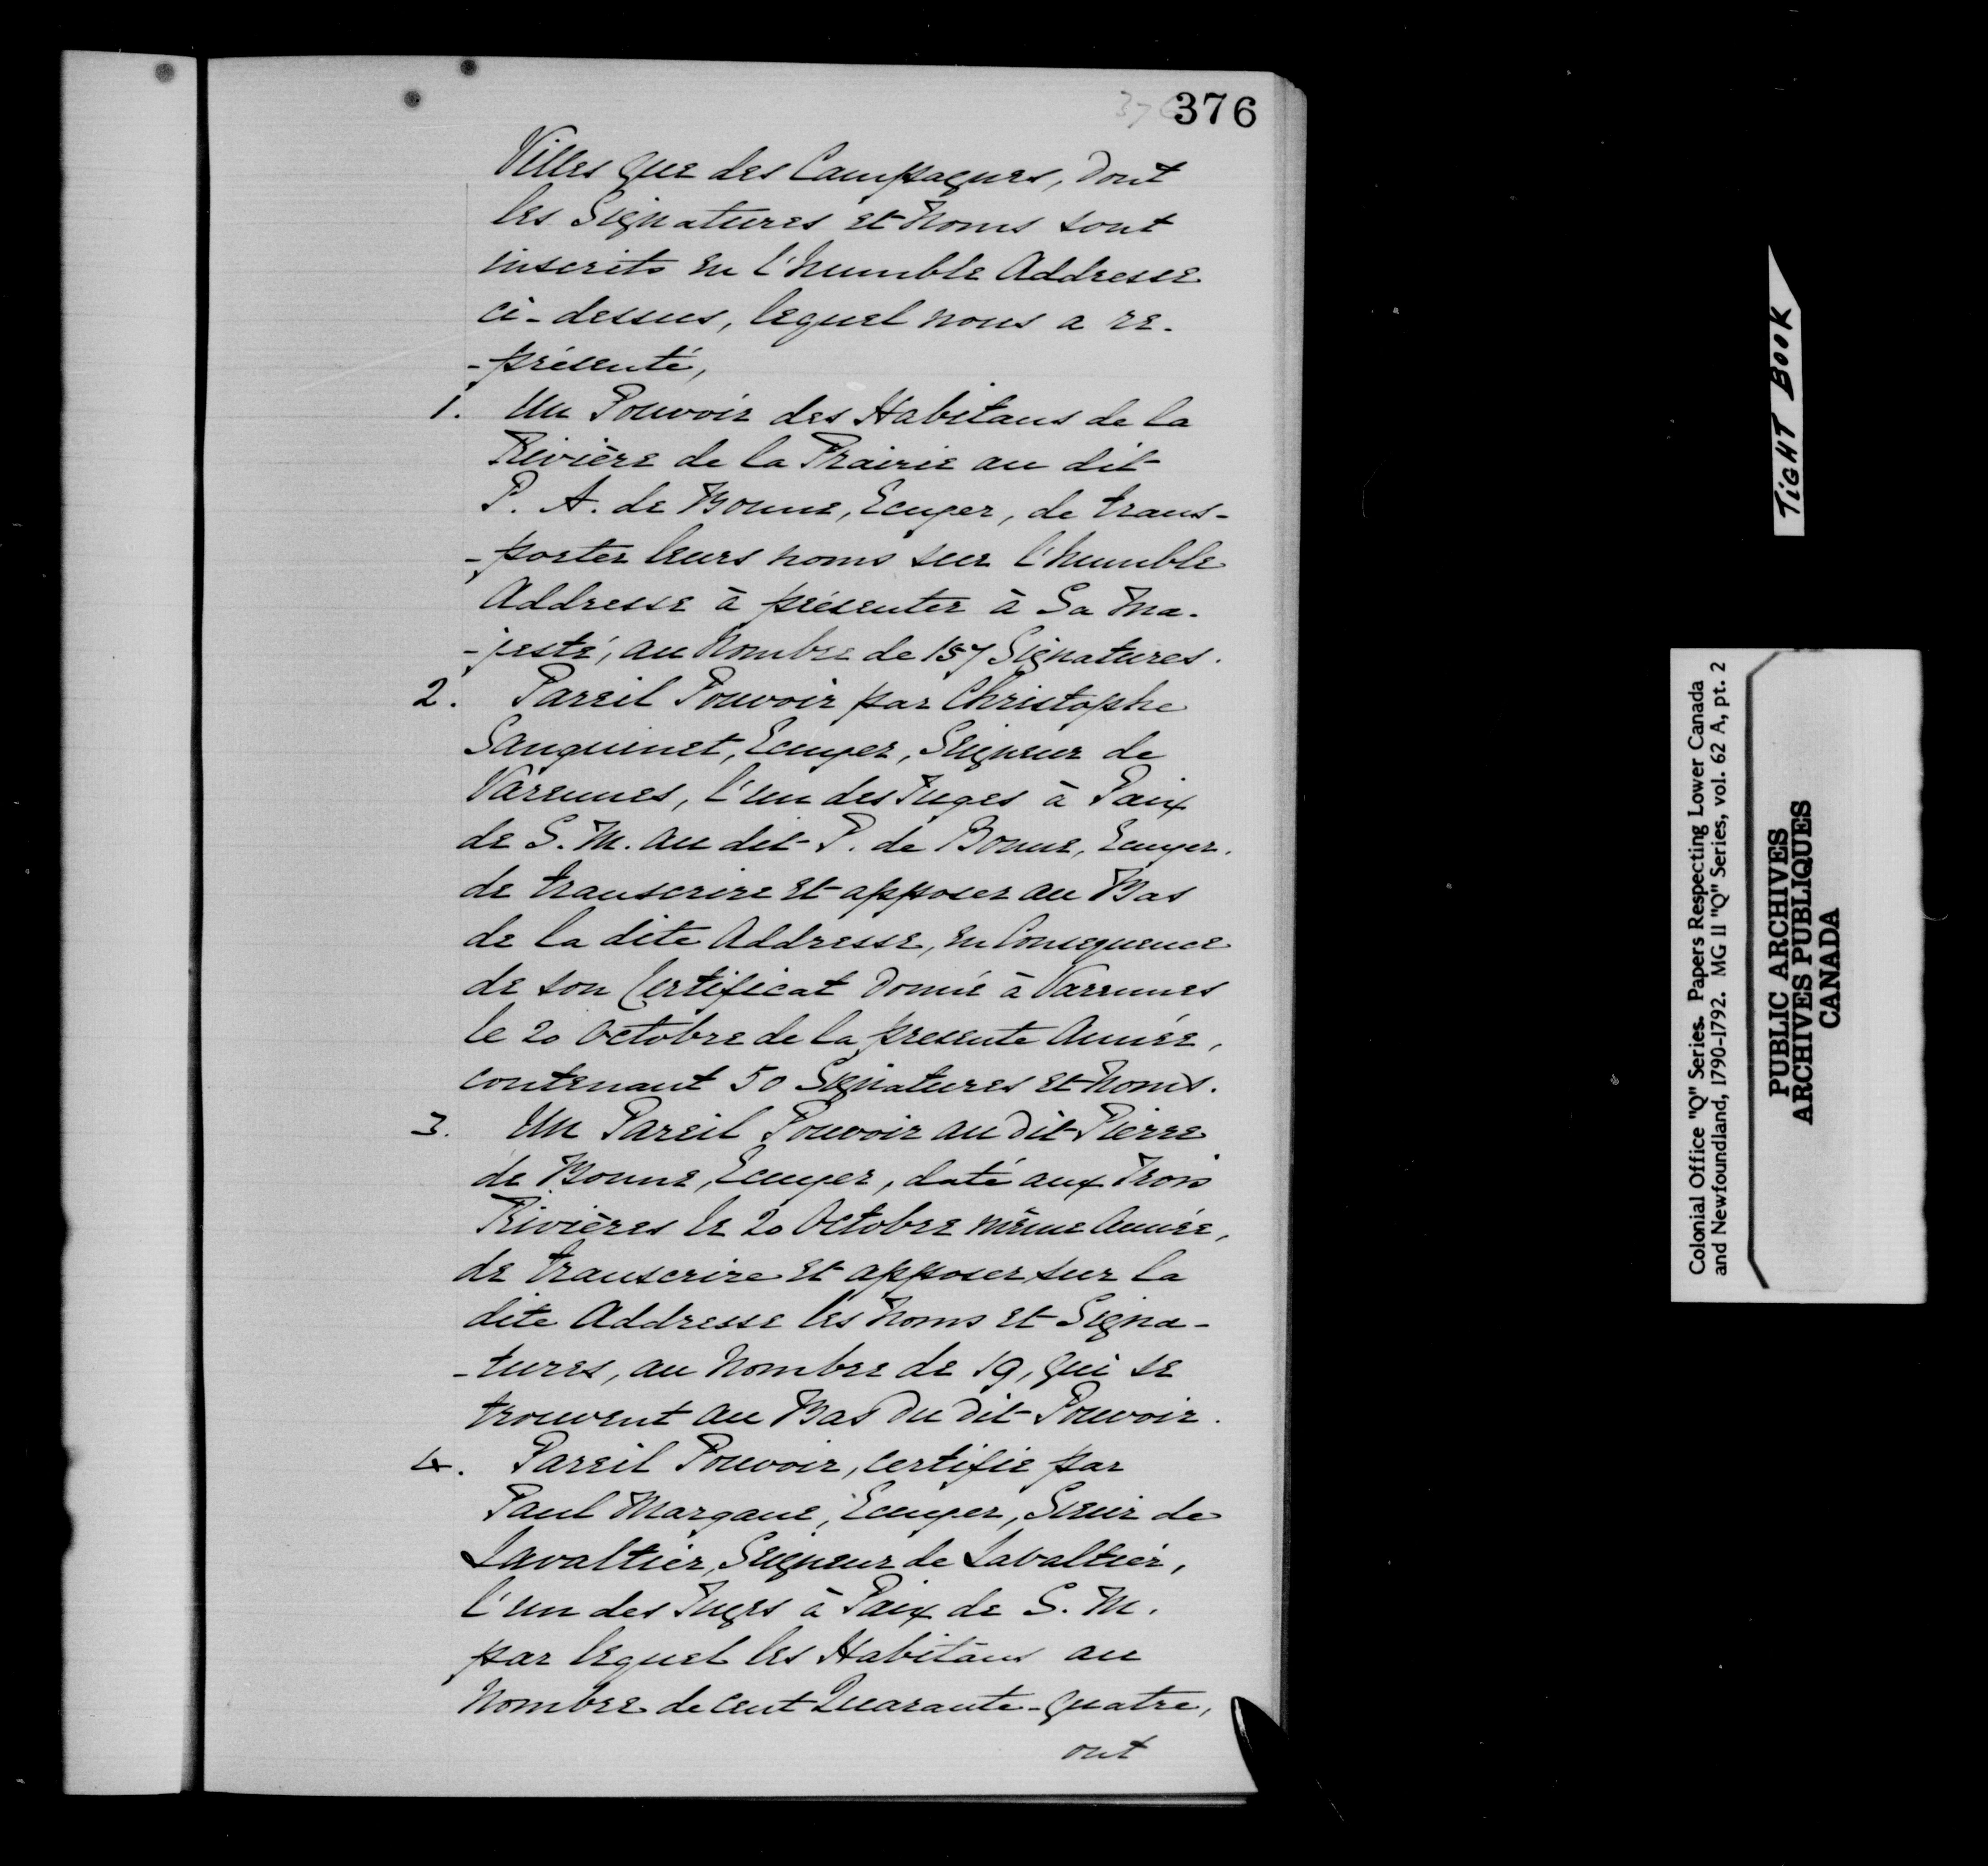 376
376
Villes que des Campagnes, dont
les Signatures et Noms sont
inscrits en l'humble Addresse
ci-dessus, lequel nous a re-
-présenté,
1. Un Pouvoir des Habitans de la
Rivière de la Prairie au dit
P. A. de Bonne, Ecuyer, de trans-
-porter leurs noms sur l'humble
Addresse à présenter à Sa Ma-
-jesté, au Nombre de 157 Signatures.
2. Pareil Pouvoir par Christophe
Sanguinet, Ecuyer, Seigneur de
Varennes, l'un des Juges à Paix
de S. M. au dit P. de Bonne, Ecuyer.
de transcrire et apposer au Bas
de la dite Addresse, en Consequence
de son Certificat donné à Varennes
le 20 Octobre de la presente Année,
contenant 50 Signatures et Noms.
3. Un Pareil Pouvoir au dit Pierre
de Bonne, Ecuyer, daté aux Trois
Rivières le 20 Octobre même Année,
de transcrire et apposer sur la
dite Addresse les Noms et Signa-
-tures, au Nombre de 19, qui se
trouvent au Bas du dit Pouvoir.
4. Pareil Pouvoir, certifie par
Paul Margane, Ecuyer, Sieur de
Lavaltier, Seigneur de Lavaltier,
l'un des Juges à Paix de S. M.
par lequel les Habitans au
Nombre de cent Quarante-quatre,
ont
TIGHT BOOK
Colonial Office "Q" Series. Papers Respecting Lower Canada
and Newfoundland, 1790-1792. MG 11 "Q" Series, vol. 62 A, pt. 2
PUBLIC ARCHIVES
ARCHIVES PUBLIQUES
CANADA